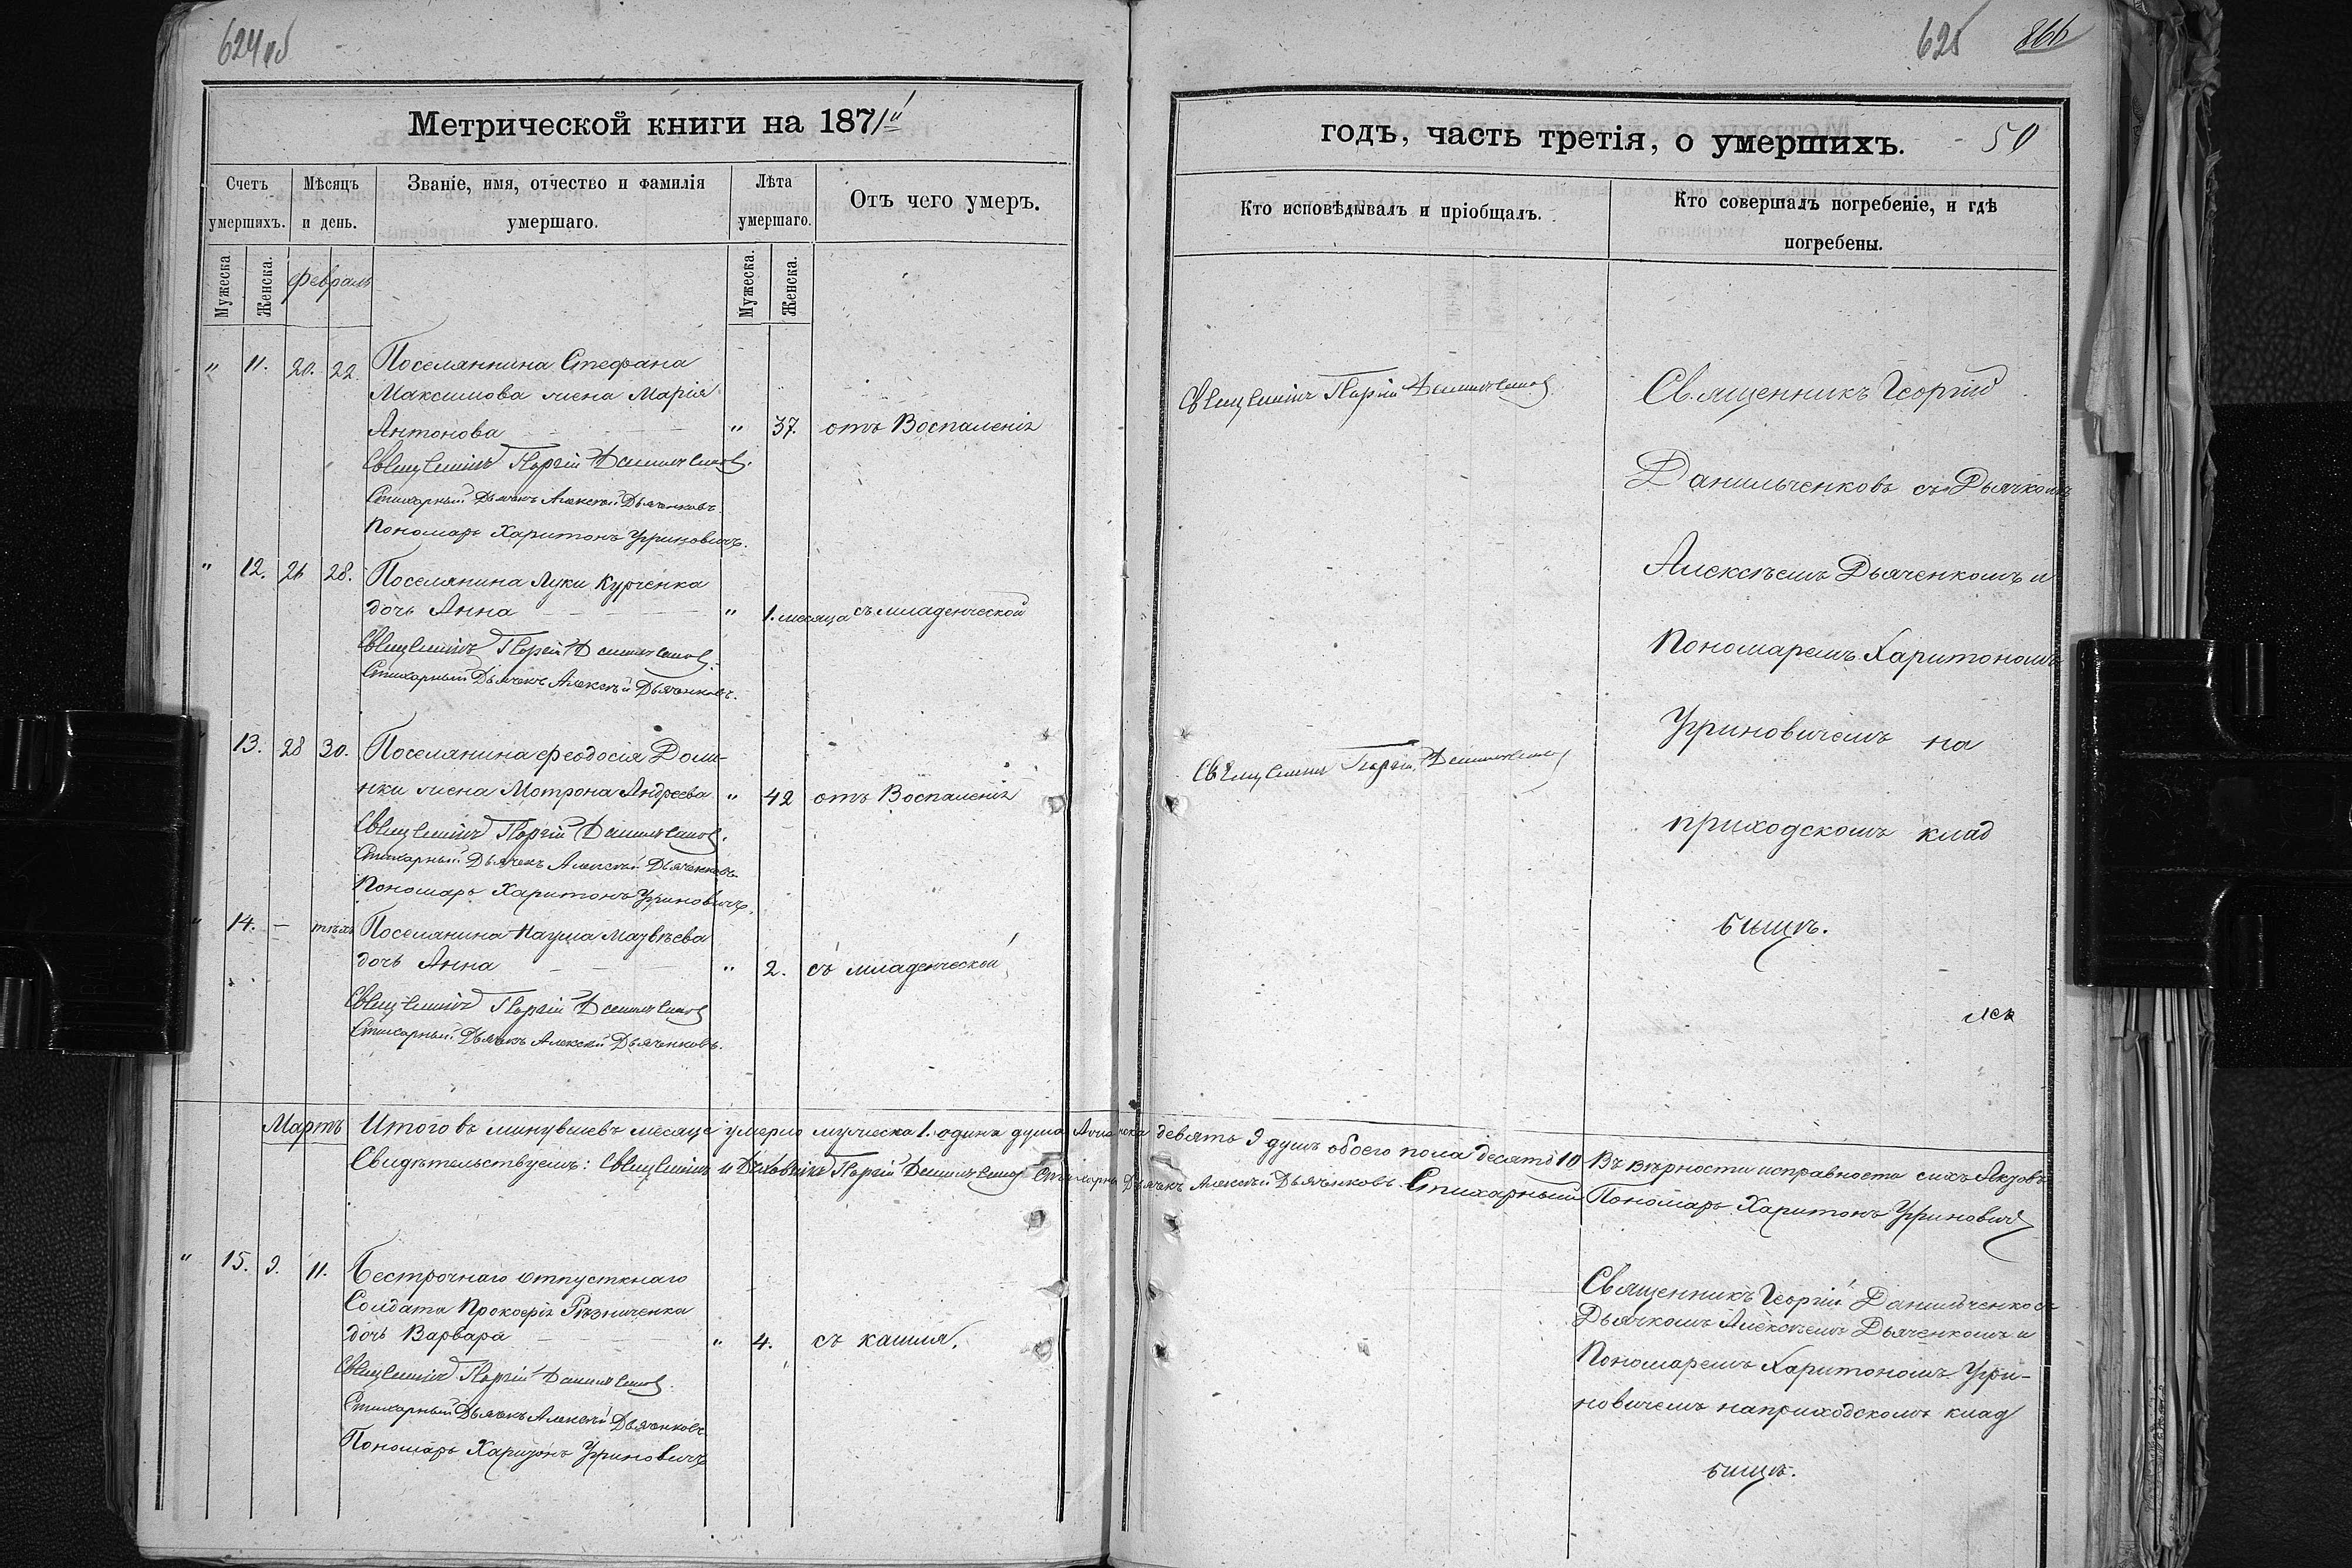 624 об
Метрической книги на 1871й
Счетъ умершихъ.
Мѣсяцъ и день.
Званіе, имя, отчество и фамилія умершаго.
Лѣта умершаго.
Отъ чего умеръ.
Мужеска.
Женска.
Февраль
Мужеска.
Женска.
" 11. 20. 22. Поселянина Стефана
Максимова жена Марія
Антонова " 37. отъ Воспаленія
Священникъ Георгій Данильченковъ
Стихарный Дьячекъ Алексѣй Дьяченковъ
Пономарь Харитонъ Угриновичъ.
" 12. 26 28. Поселянина Луки Курченка
дочь Анна " 1. месяца съ младенческой
Священникъ Георгій Данильченковъ
Стихарный Дьячекъ Алексѣй Дьяченковъ.
" 13. 28 30. Поселянина Феодосія Доли-
нки жена Мотрона Андреева " 42 отъ Воспаленія
Священникъ Георгій Данильченковъ
Стихарный Дьячекъ Алексѣй Дьяченковъ
Пономарь Харитонъ Угриновичъ.
" 14. — Поселянина Наума Матвѣева
дочь Анна " 2. съ младенческой
Священникъ Георгій Данильченковъ
Стихарный Дьячекъ Алексѣй Дьяченковъ.
Мартъ Итого въ минувшевъ месяце умерло мужеска 1. одинъ душа женска девять 9 душъ обоего пола десять 10 Въ вѣрности исправности сихъ Актовъ
Свидѣтельствуемъ: Священникъ Георгій Данильченковъ Стихарный Дьячекъ Алексѣй Дьяченковъ Стихарный Пономарь Харитонъ Угриновичъ
" 15. 9. 11. Безстрочнаго отпускнаго
Солдата Прокофія Рѣзниченка
дочь Варвара " 4. съ кашля.
Священникъ Георгій Данильченковъ
Стихарный Дьячекъ Алексѣй Дьяченковъ
Пономарь Харитонъ Угриновичъ
625 866
годъ, часть третія, о умершихъ. - 50
Кто исповѣдывалъ и пріобщалъ.
Кто совершалъ погребеніе, и гдѣ погребены.
Священникъ Георгій Данильченковъ
Священникъ Георгій
Данильченковъ съ Дьячкомъ
Алексѣемъ Дьяченкомъ и
Пономаремъ Харитономъ
Угриновичемъ на
Священникъ Георгій Данильченковъ
приходскомъ клад
бищѣ.
Священникъ Георгій Данильченко съ
Дьячкомъ Алексѣемъ Дьяченкомъ и
Пономаремъ Харитономъ Угри-
новичемъ на приходскомъ клад
бищѣ.